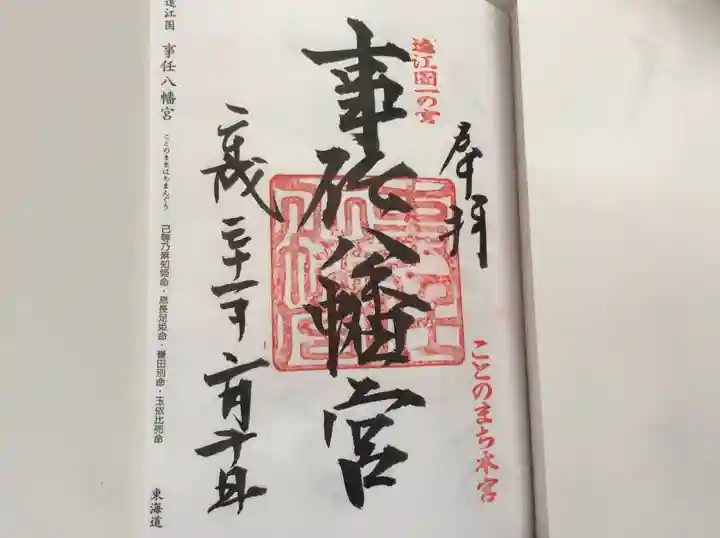 奉拝
遠江國一の宮
ことのまち本宮
事任八幡宮
平成
遠江国 事任八幡宮 ことのままはちまんぐう 己等乃麻知姫命・息長足姫命・譽田別命・玉依比売命 東海道